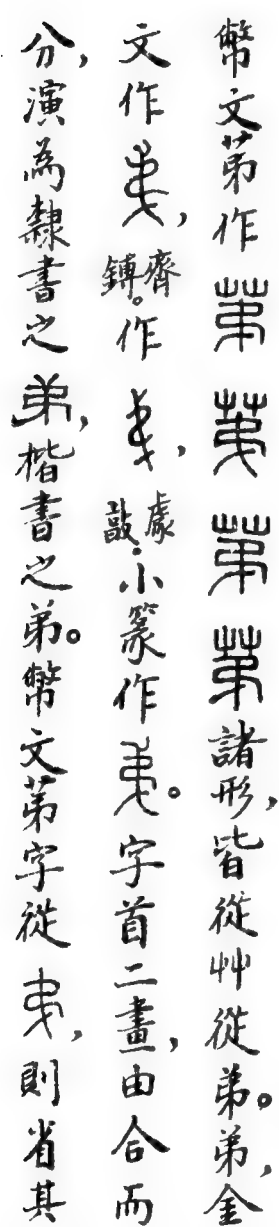 幣文苐作諸形，皆從艸從弟。弟，金
文作，齊鎛。作，處𣪘。小篆作。字首二畫，由合而
分，演為隸書之弟，楷書之弟。幣文苐字從，則省其